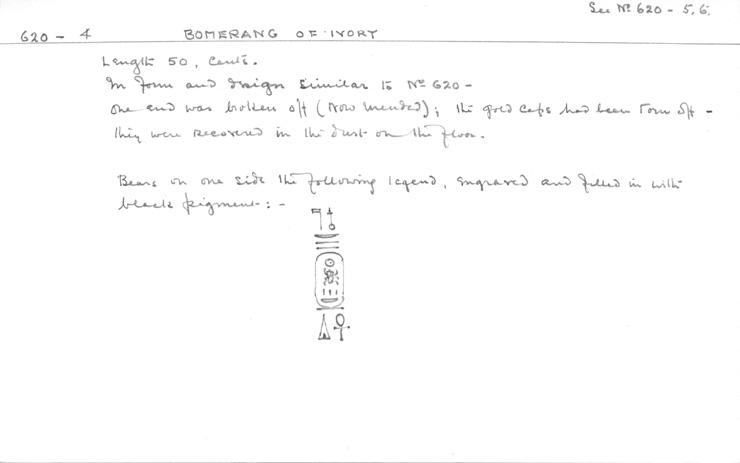 See Nº 620 - 5, 6.
620 - 4 BOMERANG OF IVORY
Length 50, cents.
In form and design similar to Nº 620 -
One end was broken off (now mended); the gold caps had been torn off -
they were recovered in the dust on the floor.
Bears on one side the following legend, engraved and filled in with
black pigment: -